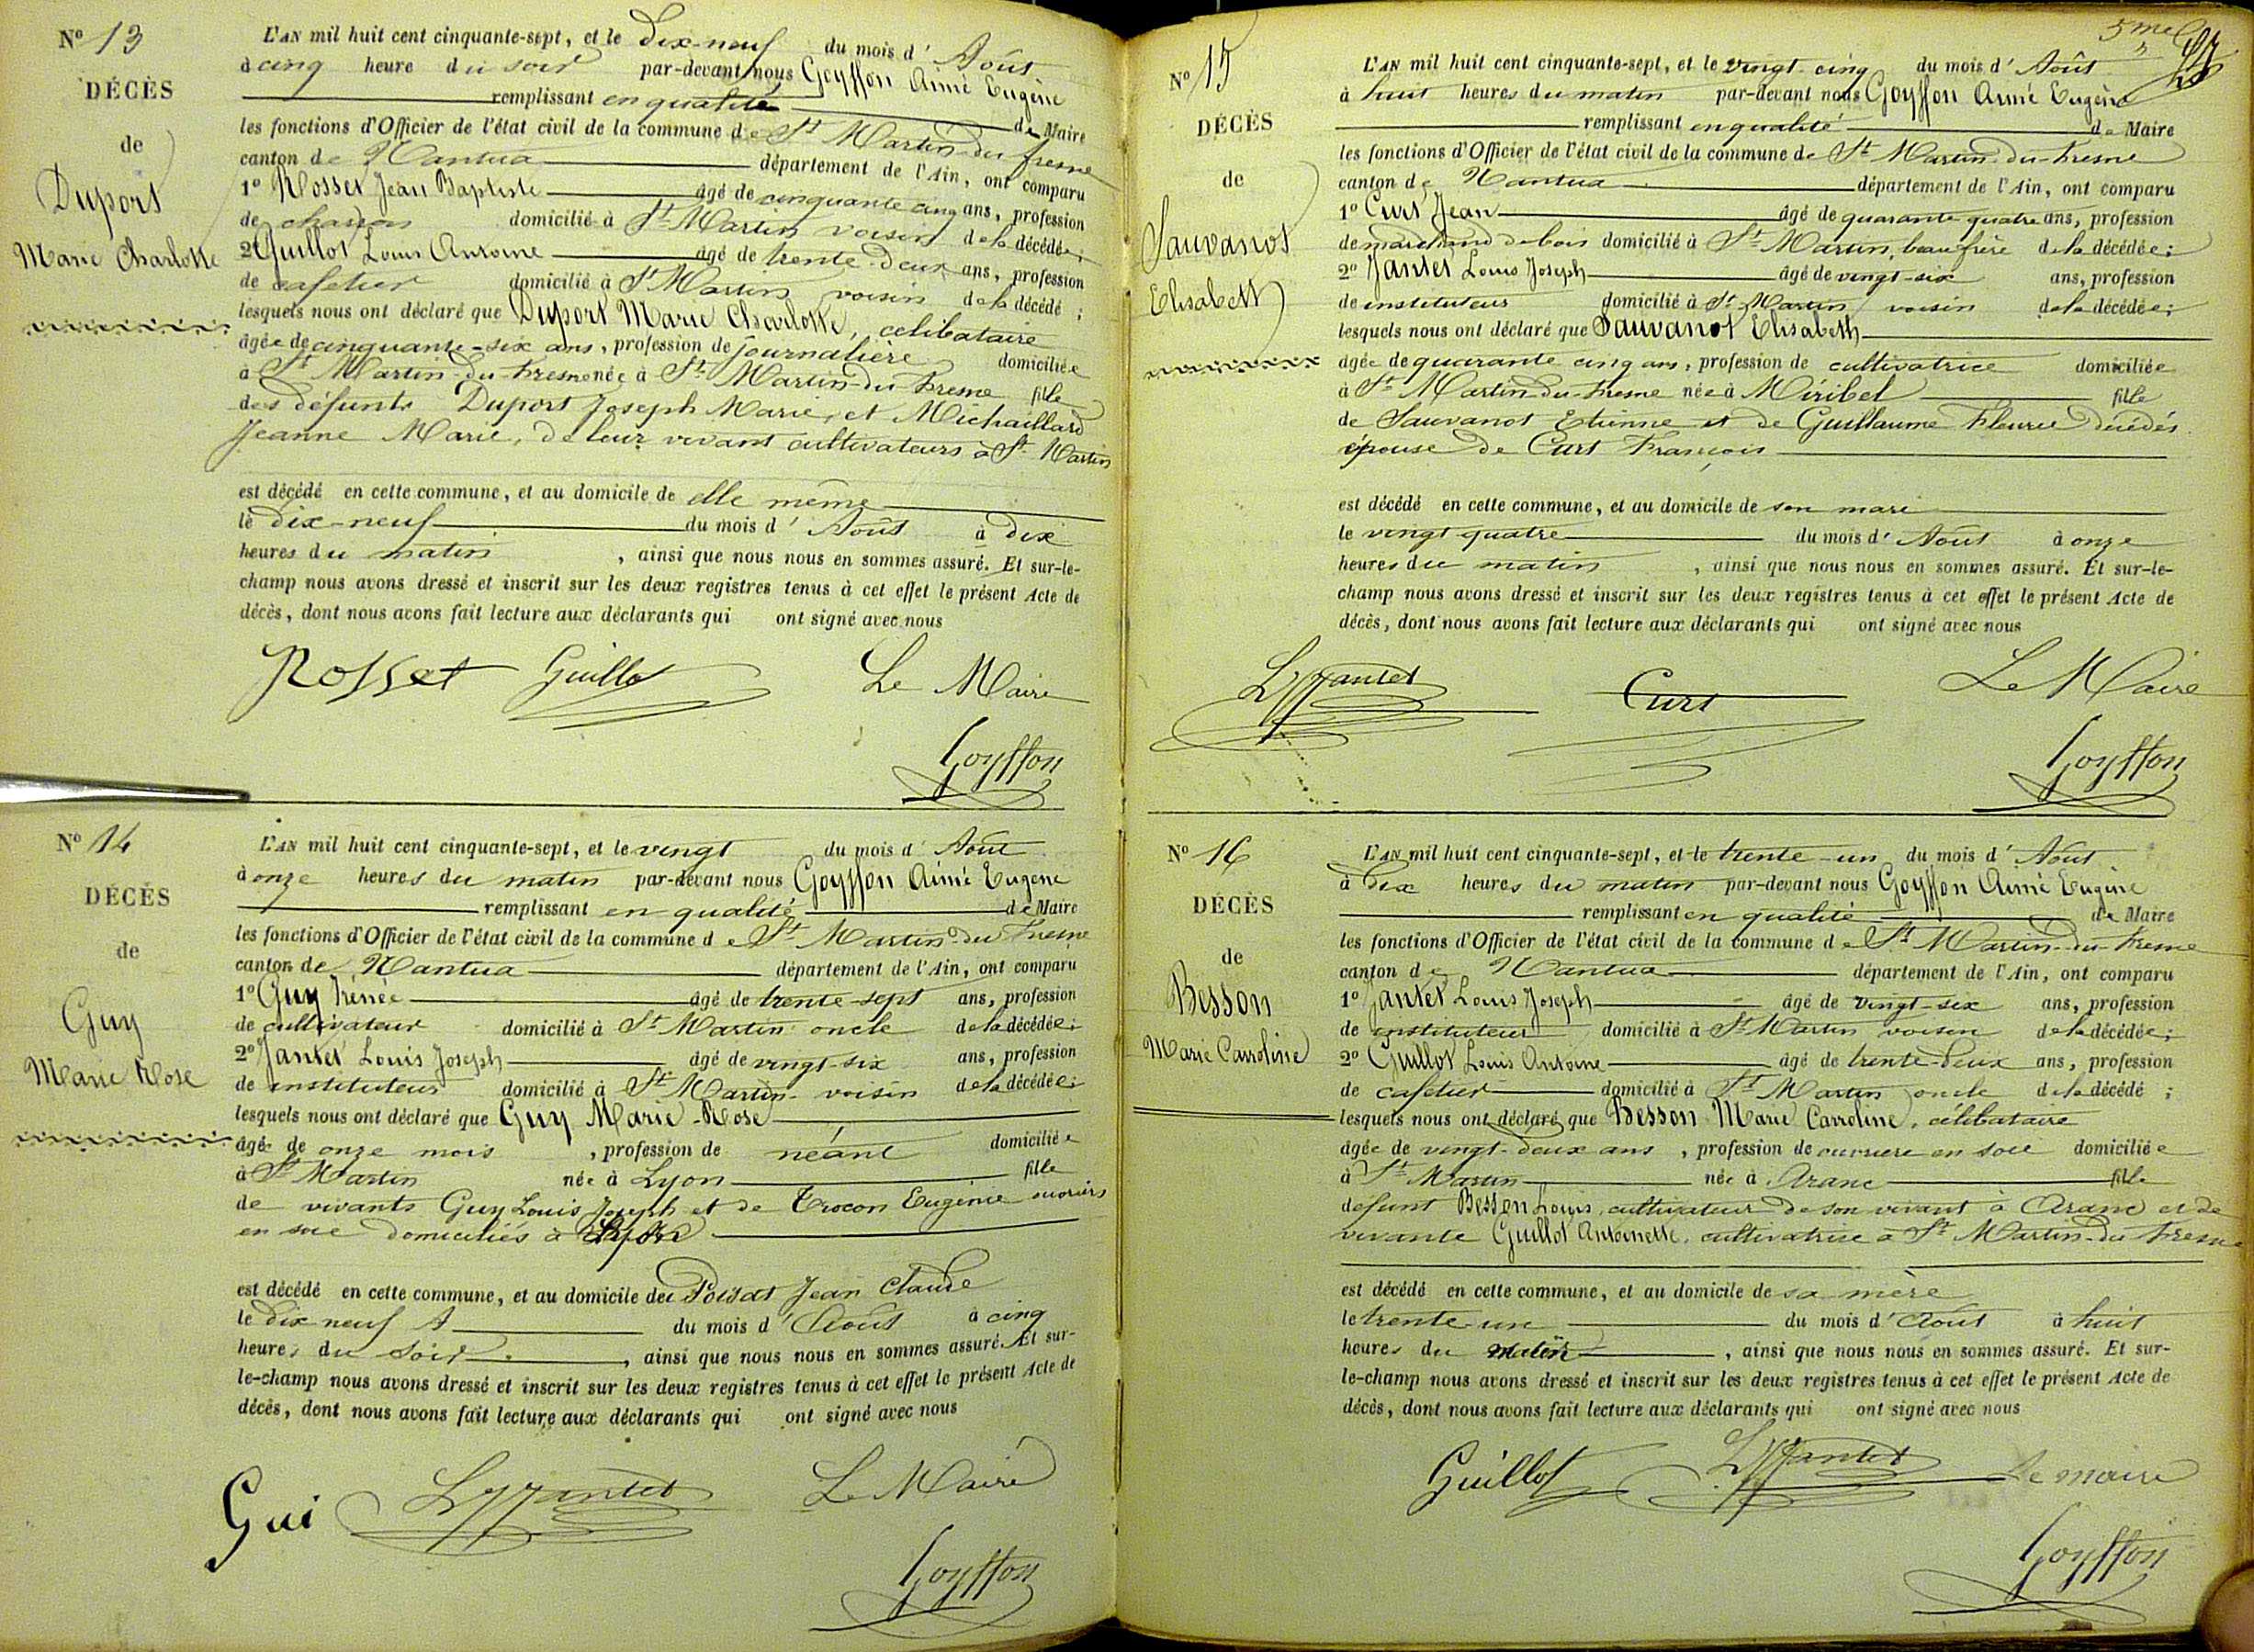 Nº 13
DÉCÈS
de
Duport
Marie Charlotte
L'AN mil huit cent cinquante-sept, et le Dix-neuf du mois d' Août
à cinq heure du soir par-devant nous Goyffon Aimé Eugène
remplissant en qualité de Maire
les fonctions d'Officier de l'état civil de la commune de St Martin-du-fresne
canton de Nantua département de l'Ain, ont comparu
1º Rosset Jean Baptiste âgé de cinquante cinq ans, profession
de charron domicilié à St Martin voisin de la décédée;
2º Guillot Louis Antoine âgé de trente-deux ans, profession
de cafetier domicilié à St Martin voisin de la décédé;
lesquels nous ont déclaré que Duport Marie Charlotte, célibataire
âgée de cinquante-six ans, profession de journalière domiciliée
à St Martin-du-fresne née à St Martin-du-fresne fille
des défunts Duport Joseph Marie, et Michaillard
Jeanne Marie, de leur vivant cultivateurs à St Martin
est décédé en cette commune, et au domicile de elle même
le dix-neuf du mois d' Août à dix
heures du matin, ainsi que nous nous en sommes assuré. Et sur-le-
champ nous avons dressé et inscrit sur les deux registres tenus à cet effet le présent Acte de
décès, dont nous avons fait lecture aux déclarants qui ont signé avec nous
Rosset Guillot Le Maire
Goyffon
Nº 14
DÉCÈS
de
Guy
Marie Rose
L'AN mil huit cent cinquante-sept, et le vingt du mois d' Août
à onze heures du matin par-devant nous Goyffon Aimé Eugène
remplissant en qualité de Maire
les fonctions d'Officier de l'état civil de la commune de St Martin du fresne
canton de Nantua département de l'Ain, ont comparu
1º Guy Irénée âgé de trente-sept ans, profession
de cultivateur domicilié à St Martin oncle de la décédée;
2º Jantet Louis Joseph âgé de vingt-six ans, profession
de instituteur domicilié à St Martin voisin de la décédée;
lesquels nous ont déclaré que Guy Marie-Rose
âgée de onze mois, profession de néant domiciliée
à St Martin née à Lyon fille
de vivants Guy Louis Joseph et de Trocon Eugénie ouvriers
en soie domiciliés à Lyon
est décédé en cette commune, et au domicile de Poisat Jean Claude
le dix neuf du mois d' Août à cinq
heures du soir, ainsi que nous nous en sommes assuré. Et sur-
le-champ nous avons dressé et inscrit sur les deux registres tenus à cet effet le présent Acte de
décès, dont nous avons fait lecture aux déclarants qui ont signé avec nous
Gui LJJantet Le Maire
Goyffon
5me
Nº 15
DÉCÈS
de
Sauvanot
Elisabeth
L'AN mil huit cent cinquante-sept, et le vingt-cinq du mois d' Août
à huit heures du matin par-devant nous Goyffon Aimé Eugène
remplissant en qualité de Maire
les fonctions d'Officier de l'état civil de la commune de St Martin-du-fresne
canton de Nantua département de l'Ain, ont comparu
1º Curt Jean âgé de quarante quatre ans, profession
de marchand de bois domicilié à St Martin, beau frère de la décédée;
2º Jantet Louis Joseph âgé de vingt-six ans, profession
de instituteur domicilié à St Martin voisin de la décédée;
lesquels nous ont déclaré que Sauvanot Elisabeth
âgée de quarante cinq ans, profession de cultivatrice domiciliée
à St Martin-du-fresne née à Miribel fille
de Sauvanot Etienne et de Guillaume Fleurie décédés
épouse de Curt François
est décédé en cette commune, et au domicile de son mari
le vingt quatre du mois d' Août à onze
heures du matin, ainsi que nous nous en sommes assuré. Et sur-le-
champ nous avons dressé et inscrit sur les deux registres tenus à cet effet le présent Acte de
décès, dont nous avons fait lecture aux déclarants qui ont signé avec nous
LJJantet Curt Le Maire
Goyffon
Nº 16
DÉCÈS
de
Besson
Marie Carroline
L'AN mil huit cent cinquante-sept, et le trente-un du mois d' Août
à dix heures du matin par-devant nous Goyffon Aimé Eugène
remplissant en qualité de Maire
les fonctions d'Officier de l'état civil de la commune de St Martin-du-fresne
canton de Nantua département de l'Ain, ont comparu
1º Jantet Louis Joseph âgé de vingt-six ans, profession
de instituteur domicilié à St Martin voisin de la décédée;
2º Guillot Louis Antoine âgé de trente-deux ans, profession
de cafetier domicilié à St Martin oncle de la décédé;
lesquels nous ont déclaré que Besson Marie Carroline, célibataire
âgée de vingt-deux ans, profession de ouvriere en soie domiciliée
à St Martin née à Aranc fille
défunt Besson Louis, cultivateur de son vivant à Aranc et de
vivante Guillot Antoinette, cultivatrice à St Martin-du-fresne
est décédé en cette commune, et au domicile de sa mère
le trente-un du mois d' Août à huit
heures du matin, ainsi que nous nous en sommes assuré. Et sur-
le-champ nous avons dressé et inscrit sur les deux registres tenus à cet effet le présent Acte de
décès, dont nous avons fait lecture aux déclarants qui ont signé avec nous
Guillot LJJantet Le maire
Goyffon